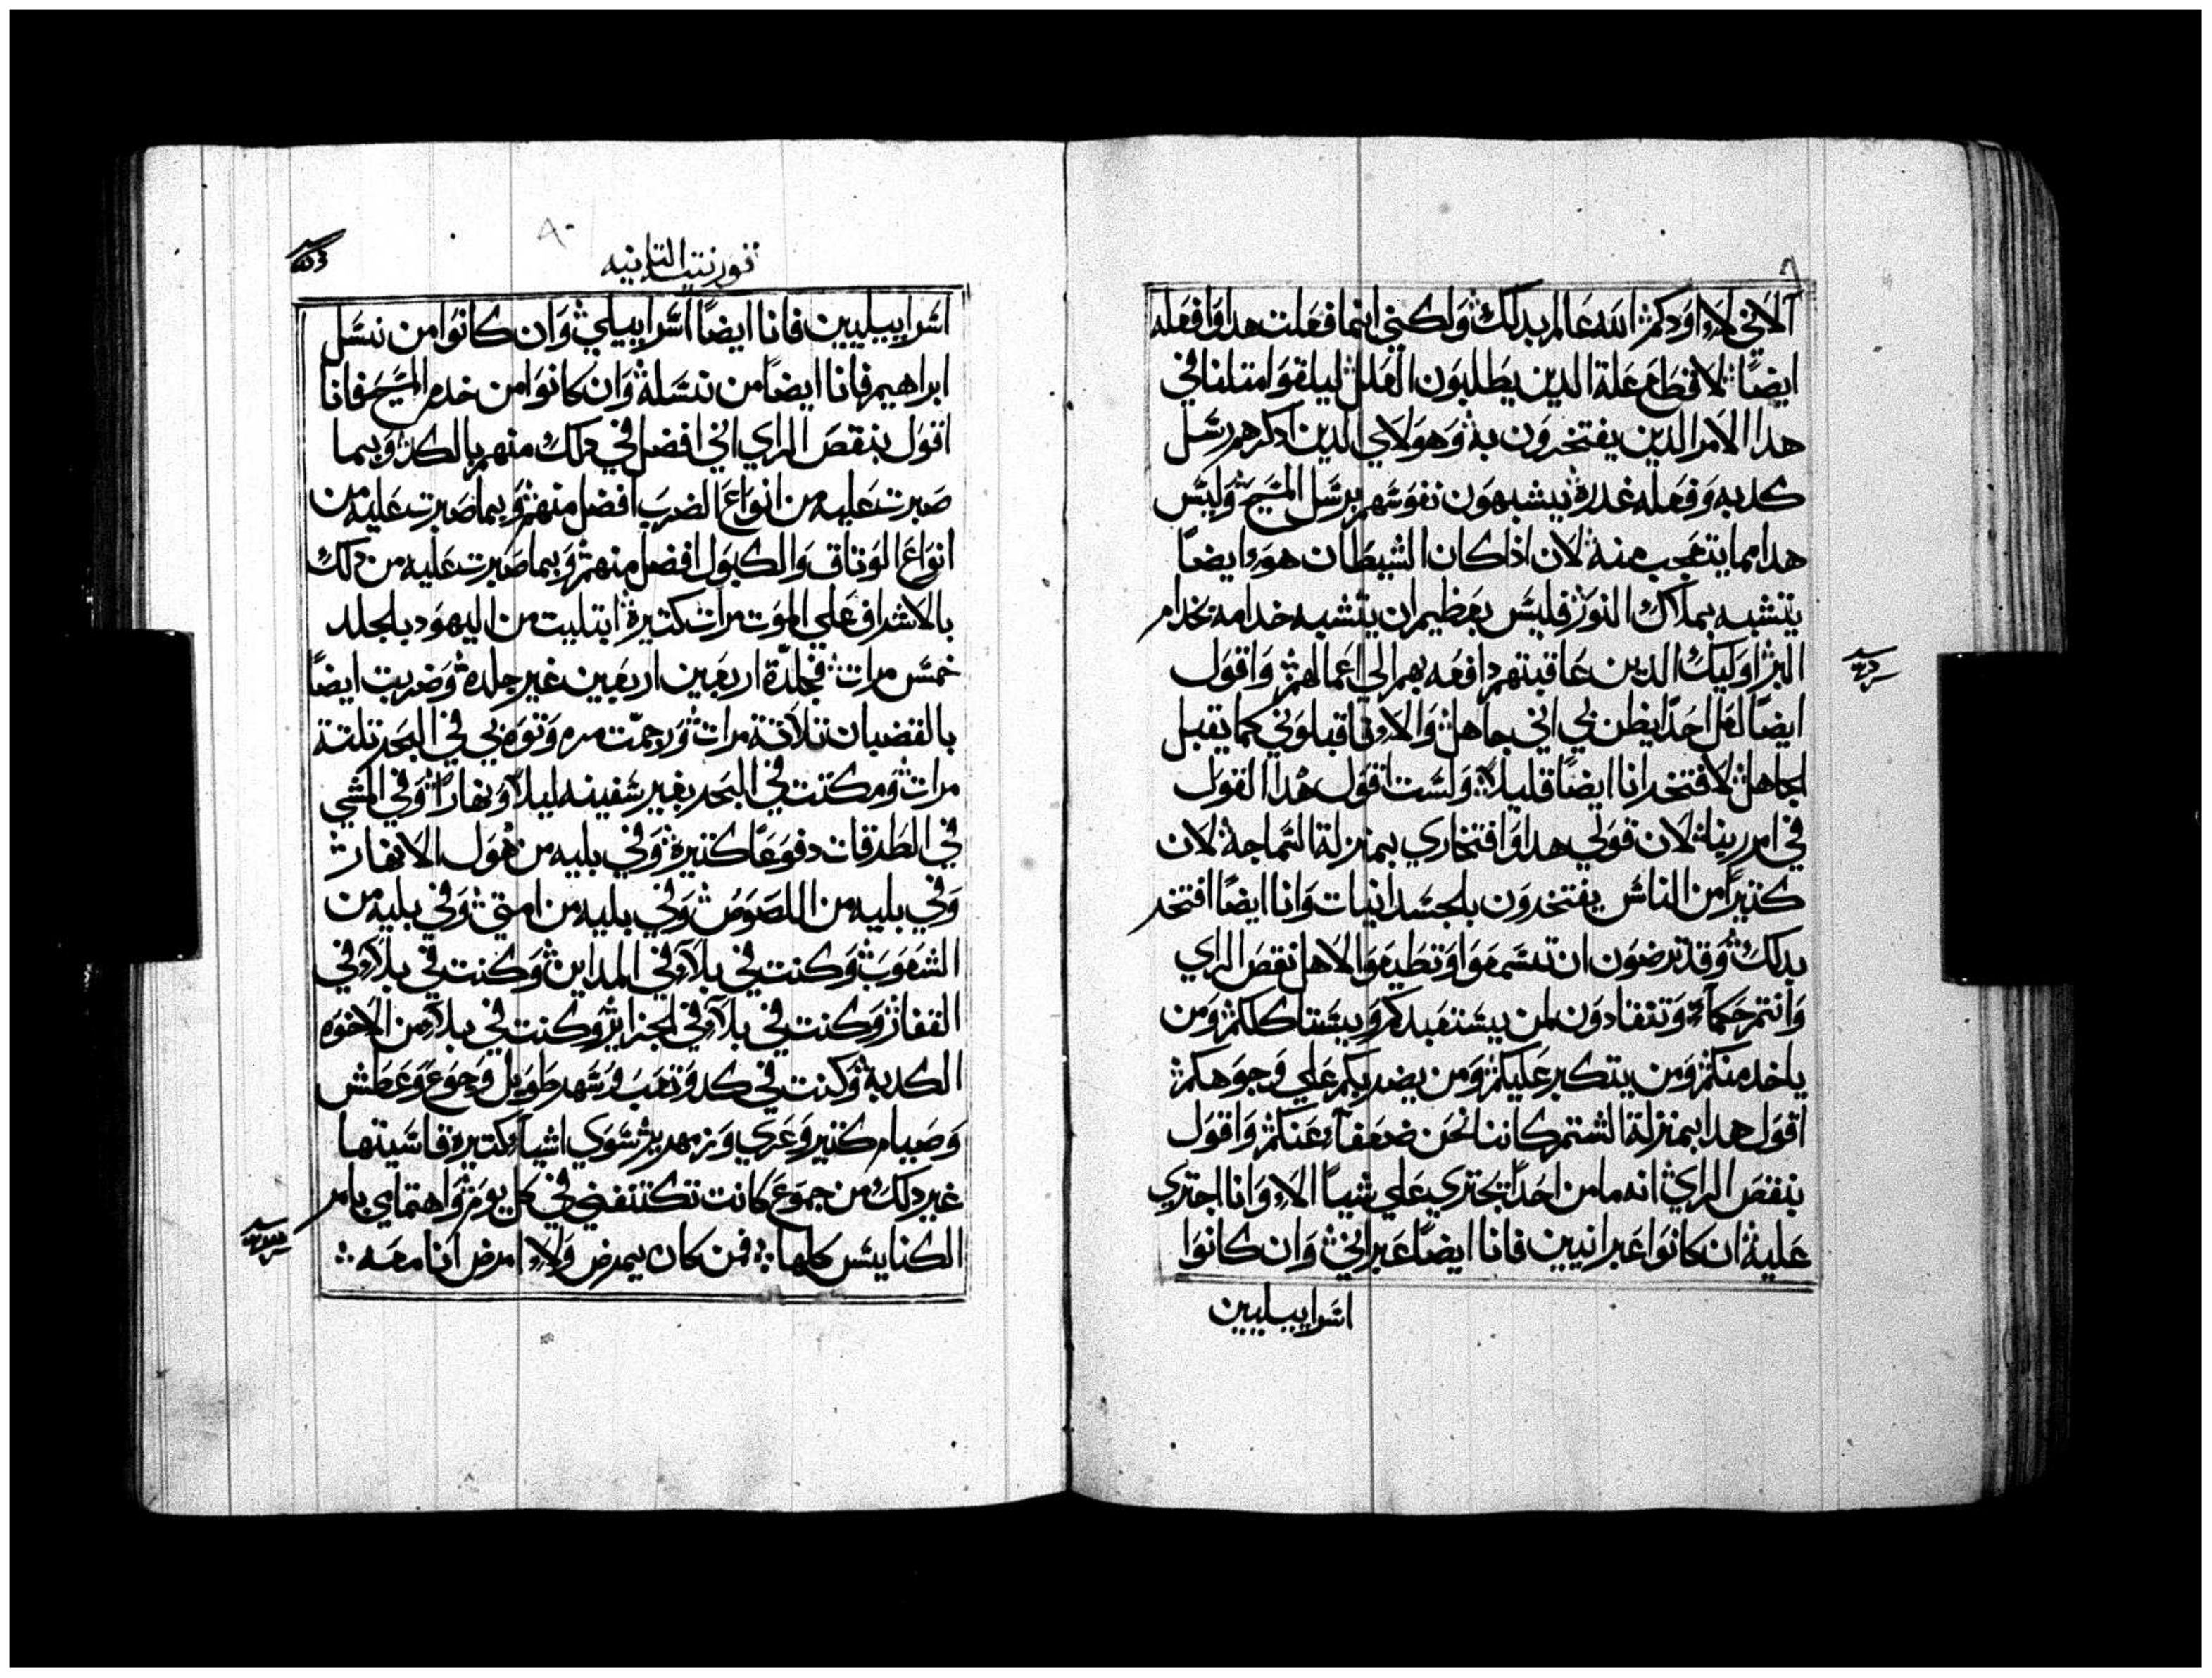 الاني لا اودكم الله عالم بدلك ولكني انما فعلت هدا وافعله
ايضا لاقطع علة الدين يطلبون العلل ليلفوا متلنا في
هدا الامر الدين يفتخرون به وهولاي الدين ادكرهم رسل
كدبه وفعله غدرة يشبهون نفوسهم برسل المسيح وليس
هدا مما يتعجب منه لان اذا كان الشيطان هوء ايضا
يتشبه بملاك النور فليس بعظيم ان يتشبه خدامه بخدام
البر اوليك الدين عاقبتهم دافعه بهم الي اعمالهم واقول
ايضا لعل احدا يظن بي اني جاهل والا فاقبلوني كما يقبل
الجاهل لافتخر انا ايضا قليلا ولست اقول هدا القول
في امر ربنا لان قولي هدا وافتخاري بمنزلة السماجة لان
كثيرا من الناس يفتخرون بالجسدانيات وانا ايضا افتخر
بدلك وقد ترضون ان تسمعوا وتطيعوا لاهل نقص الراي
وانتم حكماء وتنقادون لمن يستعبدكم ويستاكلكم ومن
ياخد منكم ومن يتكبر عليكم ومن يضربكم علي وجوهكم
اقول هدا بمنزلة الشتم كاننا نحن ضعفاء عنكم واقول
بنقص الراي انه ما من احدا يجتري علي شيا الا وانا اجتري
عليه ان كانوا عبرانيين فانا ايضا عبراني وان كانوا
اسراييليين
قورنتيه التانيه
اسراييليين فانا ايضا اسراييلي وان كانوا من نسل
ابراهيم فانا ايضا من نسله وان كانوا من خدم المسيح فانا
اقول بنقص الراي اني افضل في دلك منهم بالكد وبما
صبرت عليه من انواع الضرب افضل منهم وبما صبرت عليه من
انواع الوتاق والكبول افضل منهم وبما صبرت عليه من دلك
بالاشراف علي الموت مرات كتيرة ابتليت من اليهود بالجلد
خمس مرات فجلدة اربعين اربعين غير جلدة وضربت ايضا
بالقضبان تلاتة مرات ورجمت مره وتوه بي في البحر تلتة
مرات ومكتت في البحر بغير سفينه ليلا ونهارا وفي المشي
في الطرقات دفوعا كتيرة وفي بليه من هول الانهار
وفي بليه من اللصوص وفي بليه من امتي وفي بليه من
الشعوب وكنت في بلاء في المداين وكنت في بلاء في
القفار وكنت في بلاء في الجزاير وكنت في بلاء من الاخوه
الكدبة وكنت في كد وتعب وسهر طويل وجوع وعطش
وصيام كتير وعري وزمهرير سوي اشياء كتيرة قاسيتها
غير دلك من جموع كانت تكتنفني في كل يوم واهتمامي بامر
الكنايس كلها فمن كان يمرض ولا امرض انا معه